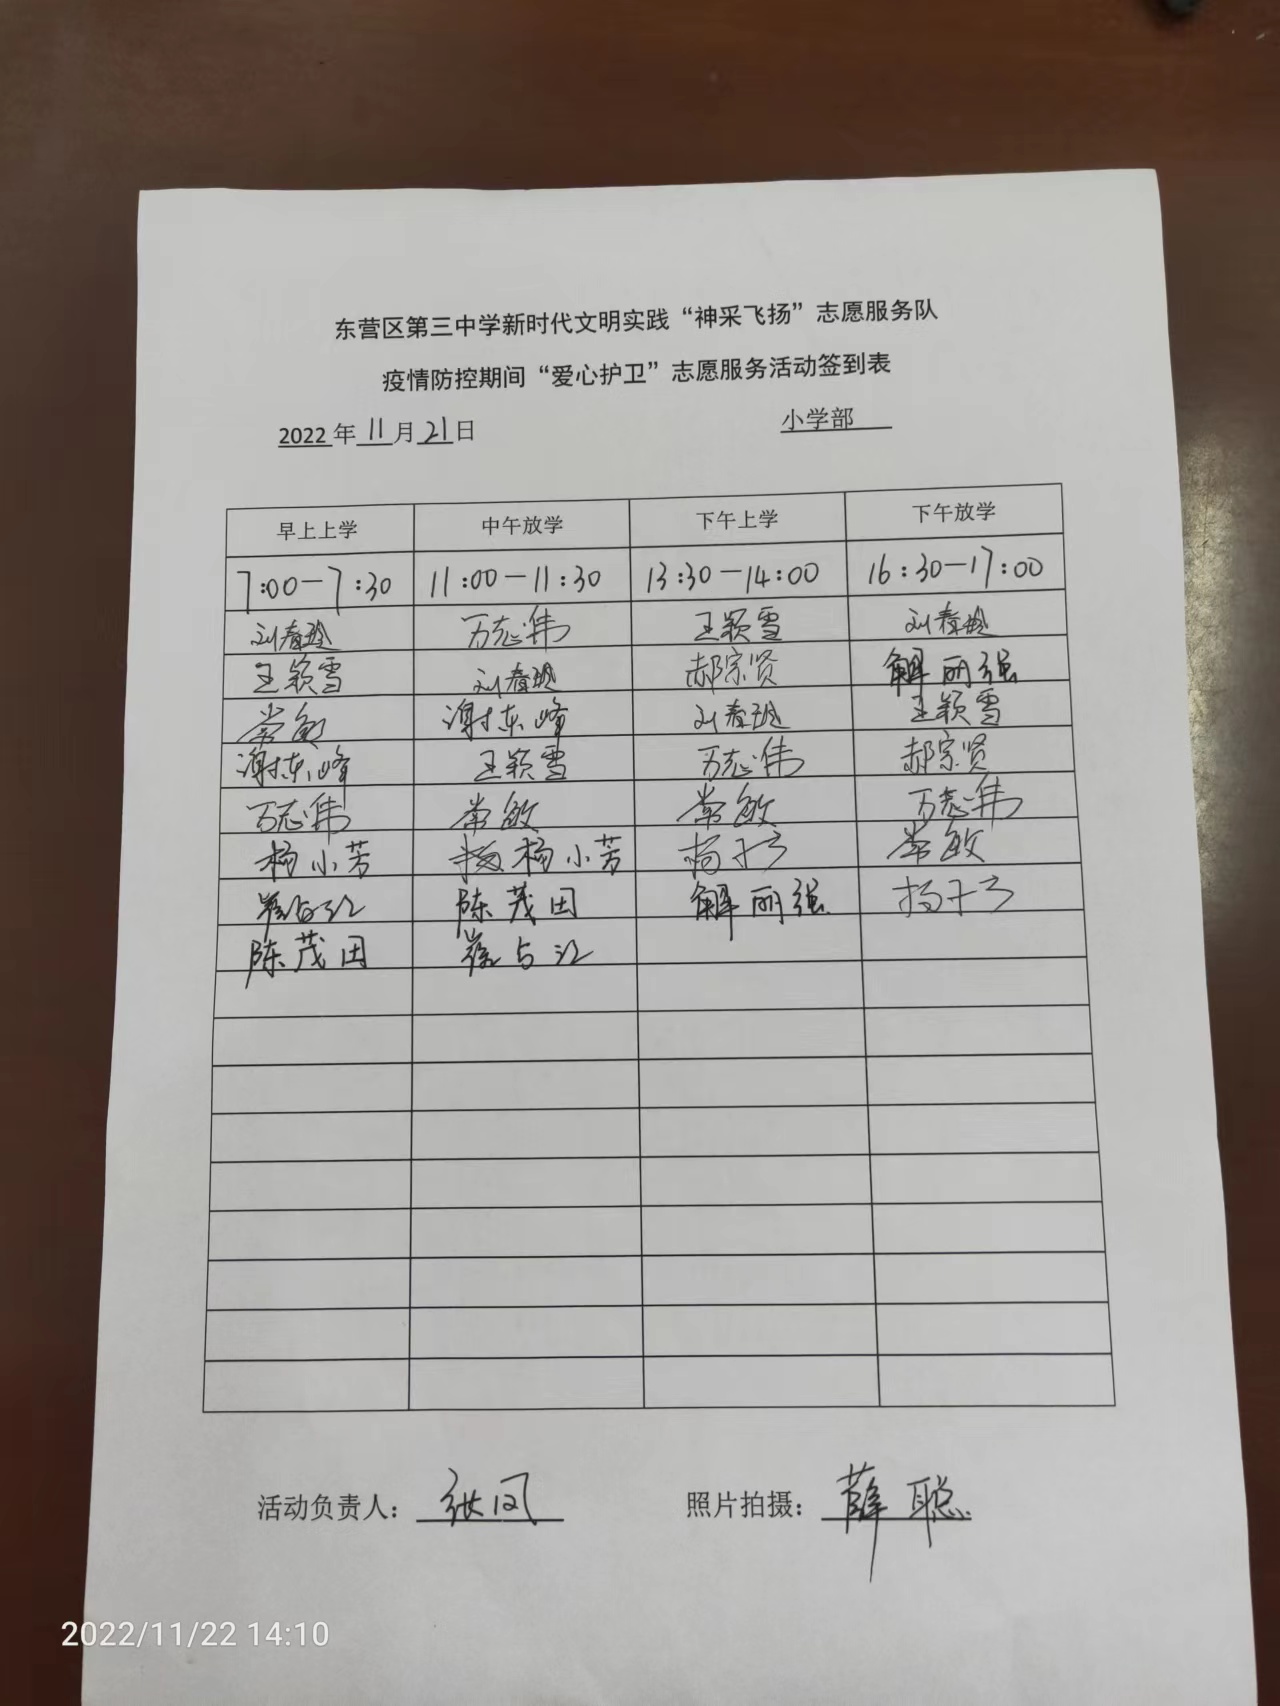 东营区第三中学新时代文明实践“神采飞扬”志愿服务队
疫情防控期间“爱心护卫”志愿服务活动签到表
2022年11月21日 小学部
早上上学 中午放学 下午上学 下午放学
7:00-7:30 11:00-11:30 13:30-14:00 16:30-17:00
刘春玲 万志伟 王颖雪 刘春玲
王颖雪 刘春玲 郝宗贤 解丽强
常敏 谢东峰 刘春玲 王颖雪
谢东峰 王颖雪 万志伟 郝宗贤
万志伟 常敏 常敏 万志伟
杨小芳 杨小芳 常敏
陈茂田 解丽强
陈茂田
活动负责人： 张凤 照片拍摄： 薛聪
2022/11/22 14:10